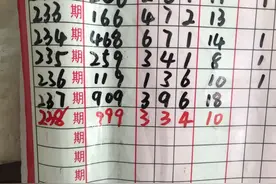 233 期 166 4 7 2 13
234 期 468 6 7 1 14 1
235 期 259 3 4 1 8 1
236 期 119 1 3 6 10 1
237 期 909 3 9 6 18
238 期 999 3 3 4 10
期
期